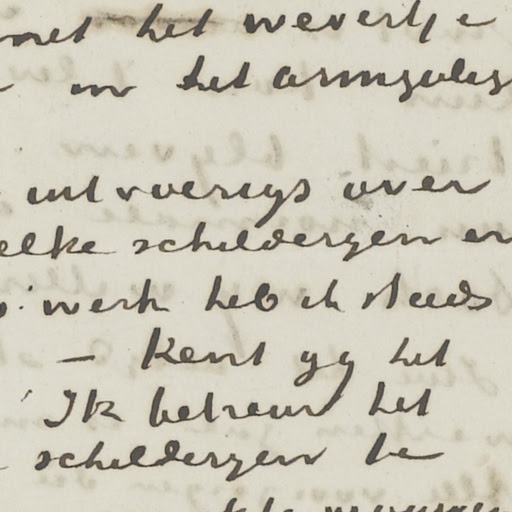 met het wevertje
in het armzalig
uitvoerigs over
elke schilderyen en
werk heb ik steeds
— Kent gy het
Ik betreur het
schilderyen te